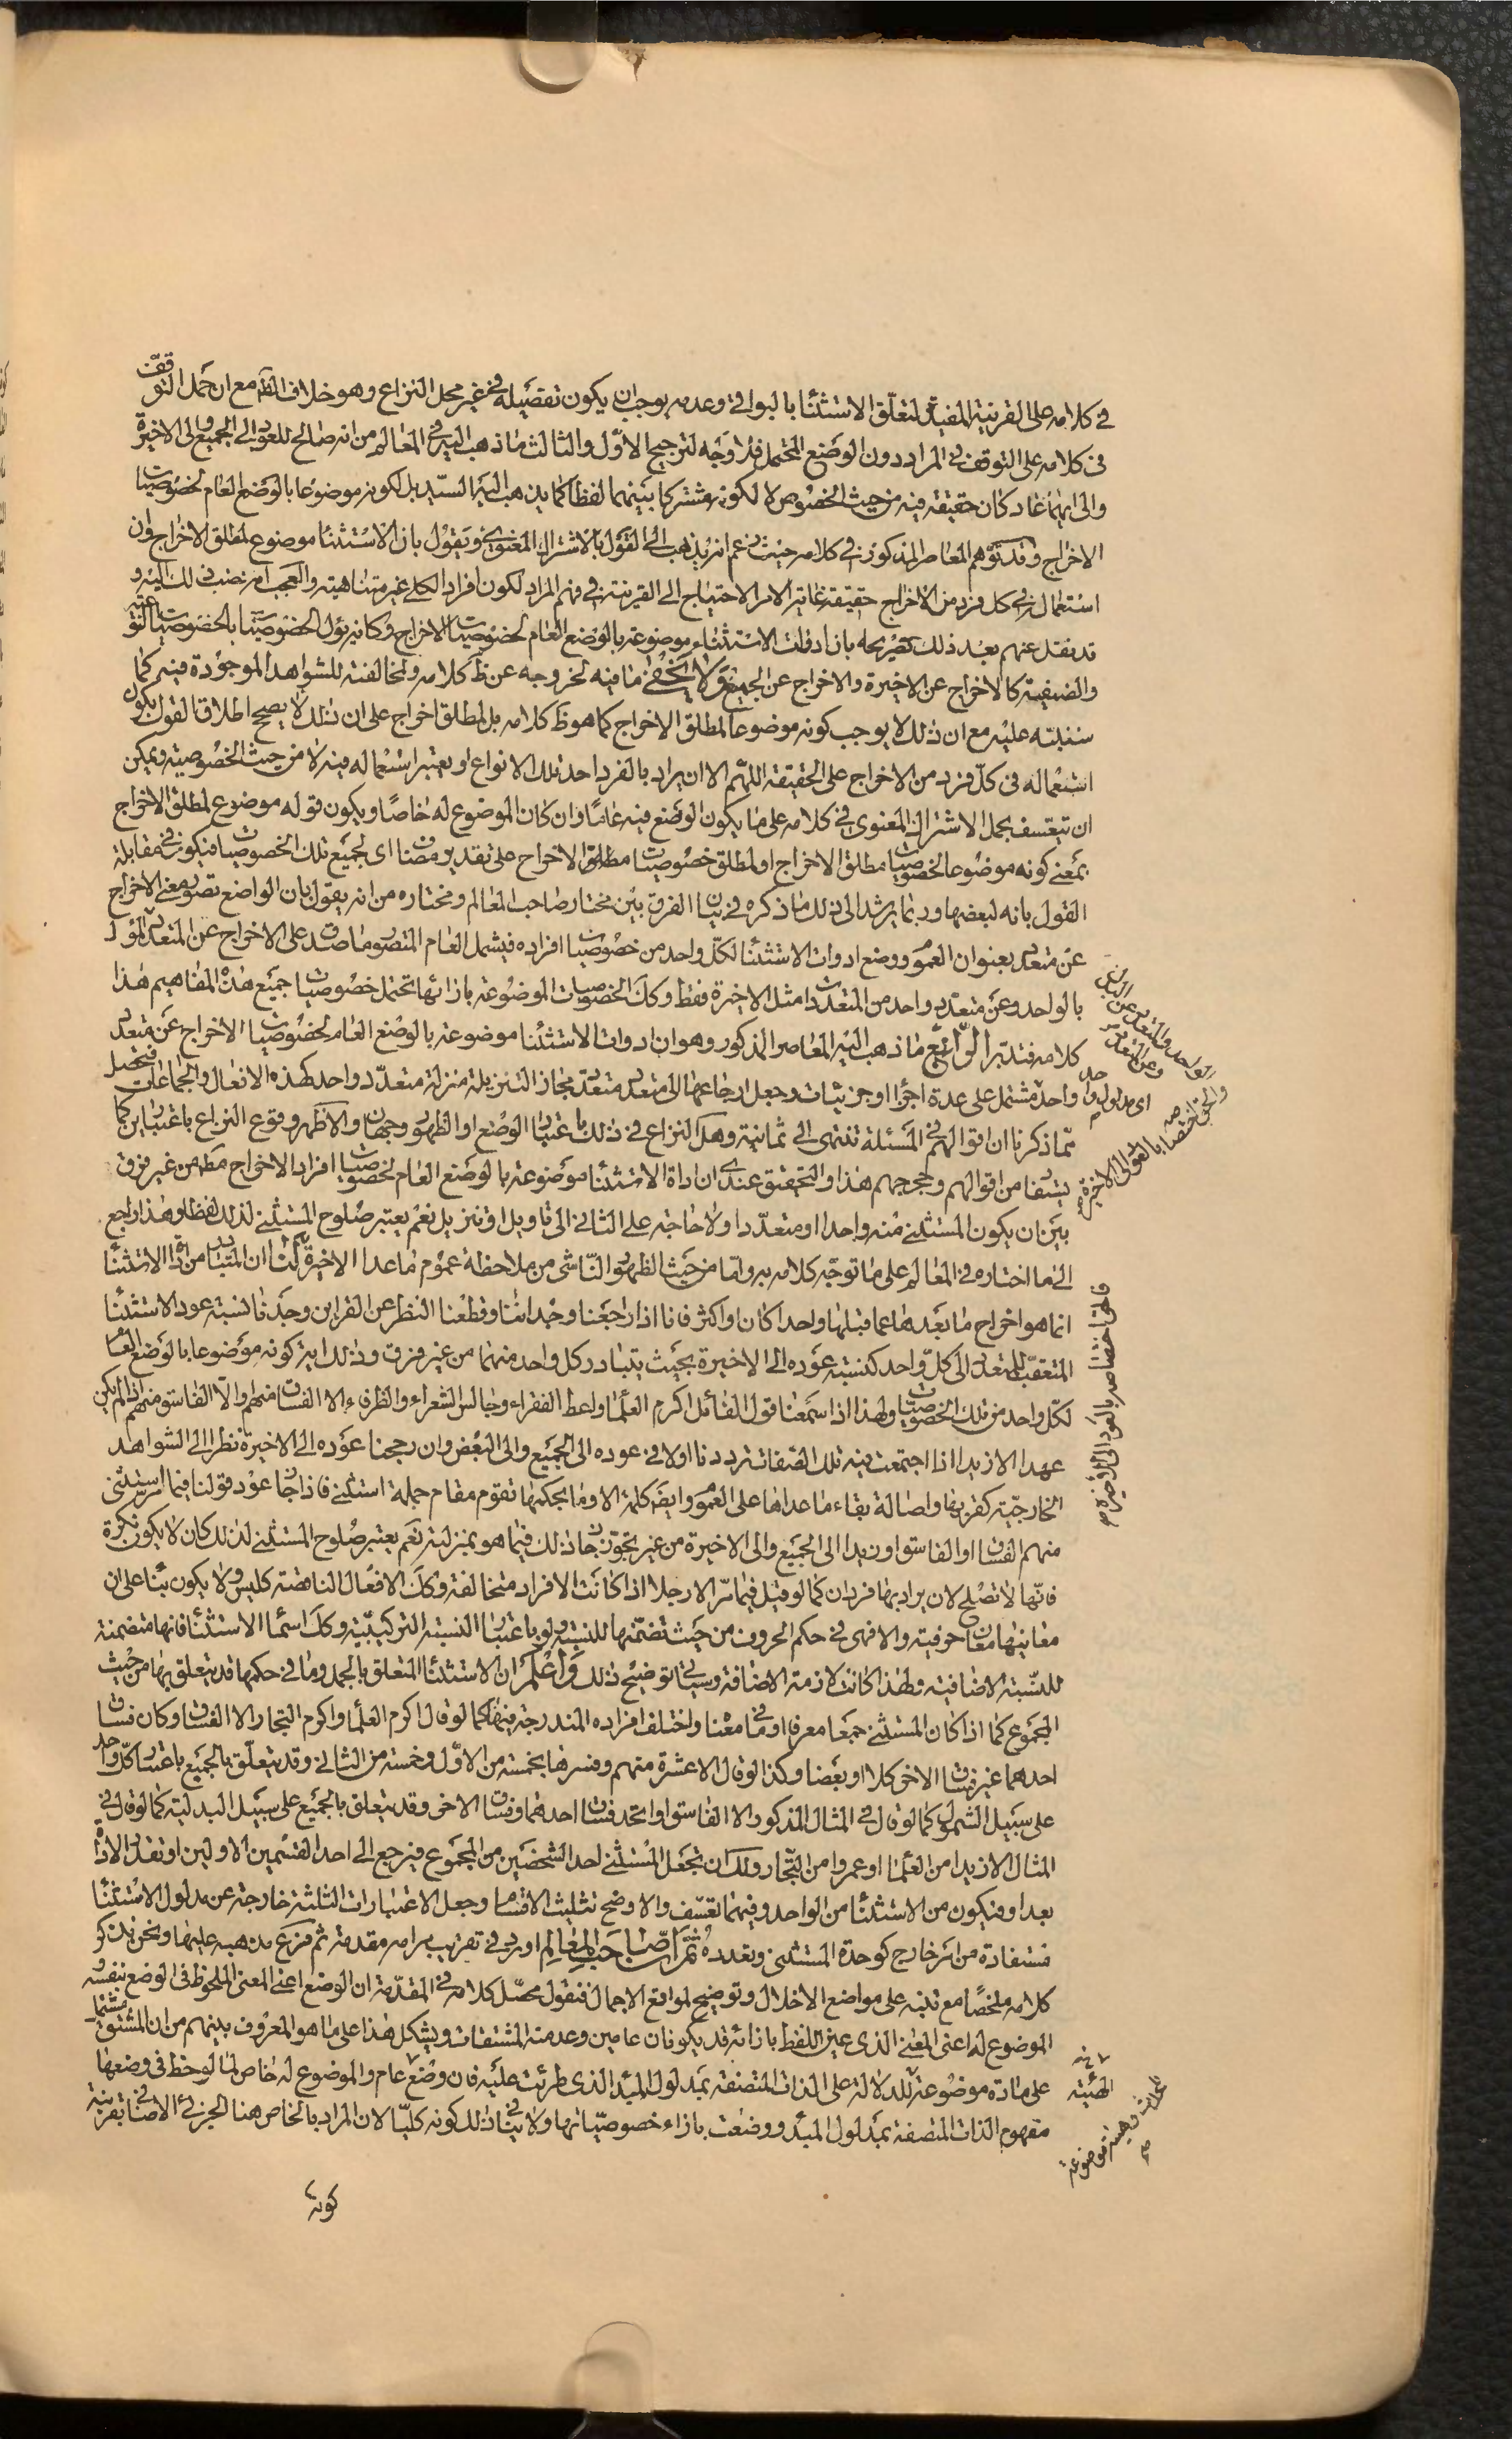 في كلامه على القرينة المفيدة لتعلق الاستثنا بالبواقي وعدمه يوجب ان يكون تفصيله في غير محل النزاع وهو خلاف الظ مع ان حمل التوقف
في كلامه على التوقف في المراد دون الوضع المحتمل فلا وجه لترجيح الاول والثالث ما ذهب اليه في المعالم من انه صالح للعود الى الجميع والى الاخيرة
والى ايهما عاد كان حقيقة فيه من حيث الخصوص لا لكونه مشتركا بينهما لفظا كما يذهب اليه السيد بل لكونه موضوعا بالوضع العام لخصوصيات
الاخراج وقد توهم المعاصر المذكور في كلامه حيث زعم انه يذهب الى القول بالاشتراك المعنوي ويقول بان الاستثنا موضوع لمطلق الاخراج فان
استعماله في كل فرد من الاخراج حقيقة غاية الامر الاحتياج الى القرينة في فهم المراد لكون افراد الكلي غير متناهية والعجب انه نسب ذلك اليه و
قد نقل عنهم بعد ذلك تصريحه بان ادوات الاستثناء موضوعة بالوضع العام لخصوصيات الاخراج وكانه يؤل الخصوصيات بالخصوصيات النوعية
والصنفية كالاخراج عن الاخيرة والاخراج عن الجميع ولا يخفى ما فيه لخروجه عن ظ كلامه ولمخالفته للشواهد الموجودة فيه كما
سننبه عليه مع ان ذلك لا يوجب كونه موضوعا لمطلق الاخراج كما هو ظ كلامه بل لمطلق اخراج على ان ذلك لا يصح اطلاق القول بكون
استعماله في كل فرد من الاخراج على الحقيقة اللهم الا ان يراد بالفرد احد تلك الانواع او يعتبر استعماله فيه لا من حيث الخصوصية ويمكن
ان يتعسف بحمل الاشتراك المعنوي في كلامه على ما يكون الوضع فيه عاما وان كان الموضوع له خاصا ويكون قوله موضوع لمطلق الاخراج
بمعنى كونه موضوعا لخصوصيات مطلق الاخراج او لمطلق خصوصيات مطلق الاخراج على تقدير مضاف اي لجميع تلك الخصوصيات فيكون في مقابلة
القول بانه لبعضها وربما يرشد الى ذلك ما ذكره في بيان الفرق بين مختار صاحب المعالم ومختاره من انه يقول بان الواضع تصور معنى الاخراج
عن متعدد بعنوان العموم ووضع ادوات الاستثنا لكل واحد من خصوصيات افراده فيشمل العام المتصور وما صدق على الاخراج عن المتعدد المؤل
بالواحد وعن متعدد واحد من المتعددات مثل الاخيرة فقط وكك الخصوصيات الموضوعة بازائها تحتمل خصوصيات جميع هذه المفاهيم هذا
كلامه فتدبر الرابع ما ذهب اليه المعاصر المذكور وهو ان ادوات الاستثنا موضوعة بالوضع العام لخصوصيات الاخراج عن متعدد
واحد مشتمل على عدة اجزاء او جزئيات وجعل ارجاعها الى متعدد متعدد مجاز التنزيله منزلة متعدد واحد كهذه الافعال والجماعات فتحصل
مما ذكرنا ان اقوالهم في المسئلة تنتهي الى ثمانية وهل النزاع في ذلك باعتبار الوضع او الظهور وجهان والاظهر وقوع النزاع باعتبارين كما
يستفاد من اقوالهم وحججهم هذا والتحقيق عندي ان اداة الاستثنا موضوعة بالوضع العام لخصوصيات افراد الاخراج مطم من غير فرق
بين ان يكون المستثنى منه واحدا او متعددا ولا حاجة على الثاني الى تاويل او تنزيل نعم يعتبر صلوح المستثنى لذلك لفظا وهذا راجع
الى ما اختاره في المعالم على ما توجه كلامه به واما من حيث الظهور الناشي من ملاحظة عموم ما عدا الاخيرة لنا ان المتبادر من اداة الاستثنا
انما هو اخراج ما بعدها عما قبلها واحدا كان او اكثر فانا اذا راجعنا وجداننا وقطعنا النظر عن القراين وجدنا نسبة عود الاستثنا
المتعقب للمتعدد الى كل واحد كنسبة عوده الى الاخيرة بحيث يتبادر كل واحد منهما من غير فرق وذلك اية كونه موضوعا بالوضع العام
لكل واحد من تلك الخصوصيات ولهذا اذا سمعنا قول القائل اكرم العلما واعط الفقراء وجالس الشعراء والظرفاء الا الفساق منهم والا الفاسق منهم اذا لم يكن
عهد الا زيدا اذا اجتمعت فيه تلك الصفات ترددنا اولا في عوده الى الجميع والى البعض وان رجحنا عوده الى الاخيرة نظرا الى الشواهد
الخارجية كقربها واصالة بقاء ما عداها على العموم وايض كلمة الا وما بحكمها تقوم مقام جملة استثنى فاذا جاز عود قولنا فيما
منهم الفساق او الفاسق او زيدا الى الجميع والى الاخيرة من غير تجوز جاز ذلك فيما هو بمنزلته نعم يعتبر صلوح المستثنى لذلك كان لا يكون نكرة
فانها لا تصلح لان يراد بها فردان كما لو قيل فيما مر الا رجلا اذا كانت الافراد متخالفة وكك الافعال الناقصة كليس ولا يكون بناء على ان
معانيها معان حرفية والا فهي في حكم الحروف من حيث تضمنها للنسبة ولو باعتبار النسبة التركيبية وكك اسماء الاستثنا فانها متضمنة
للنسبة الاضافية ولهذا كانت لازمة الاضافة وسياتي توضيح ذلك واعلم ان الاستثنا المتعلق بالجمل وما في حكمها قد يتعلق بها من حيث
المجموع كما اذا كان المستثنى جمعا معرفا او ما في معناه واختلف افراده المندرجة فيها كما لو قال اكرم العلما واكرم التجار الا الفساق وكان فساق
احدهما غير فساق الاخر كلا او بعضا وكذا لو قال الا عشرة منهم وفسرها بخمسة من الاول وخمسة من الثاني وقد يتعلق بالجميع باعتبار كل واحد
على سبيل الشمول كما لو قال في المثال المذكور الا الفاسق او اتحد فساق احدهما وفساق الاخر وقد يتعلق بالجميع على سبيل البدلية كما لو قال في
المثال الا زيدا من العلما او عمروا من التجار ولك ان تجعل المستثنى احد الشخصين من المجموع فيرجع الى احد القسمين الاولين او تقدر الاداة
بعد او فيكون من الاستثنا من الواحد وفيهما تعسف والاوضح تثليث الاقسام وجعل الاعتبارات الثلثة خارجة عن مدلول الاستثنا
مستفادة من امر خارج كوحدة المستثنى وتعدده ثم ان صاحب المعالم اورد في تقريب مرامه مقدمة ثم فرع مذهبه عليها ونحن نذكر
كلامه ملخصا مع تنبيه على مواضع الاخلال وتوضيح لمواقع الاجمال فنقول محصل كلامه في المقدمة ان الوضع اعني المعنى الملحوظ في الوضع نفسه
الموضوع له اعني المعنى الذي عين اللفظ بازائه قد يكونان عامين وعد منه المشتقات ويشكل هذا على ما هو المعروف بينهم من ان المشتق مشتمل
على مادة موضوعة للدلالة على الذات المتصفة بمدلول المبدا الذي طرئت عليه فان وضع عام والموضوع له خاص لما لوحظ في وضعها
مفهوم الذات المتصفة بمدلول المبدء ووضعت بازاء خصوصياتها ولا ينافي ذلك كونه كليا لان المراد بالخاص هنا الجزئي الاضافي بقرينة
كونه